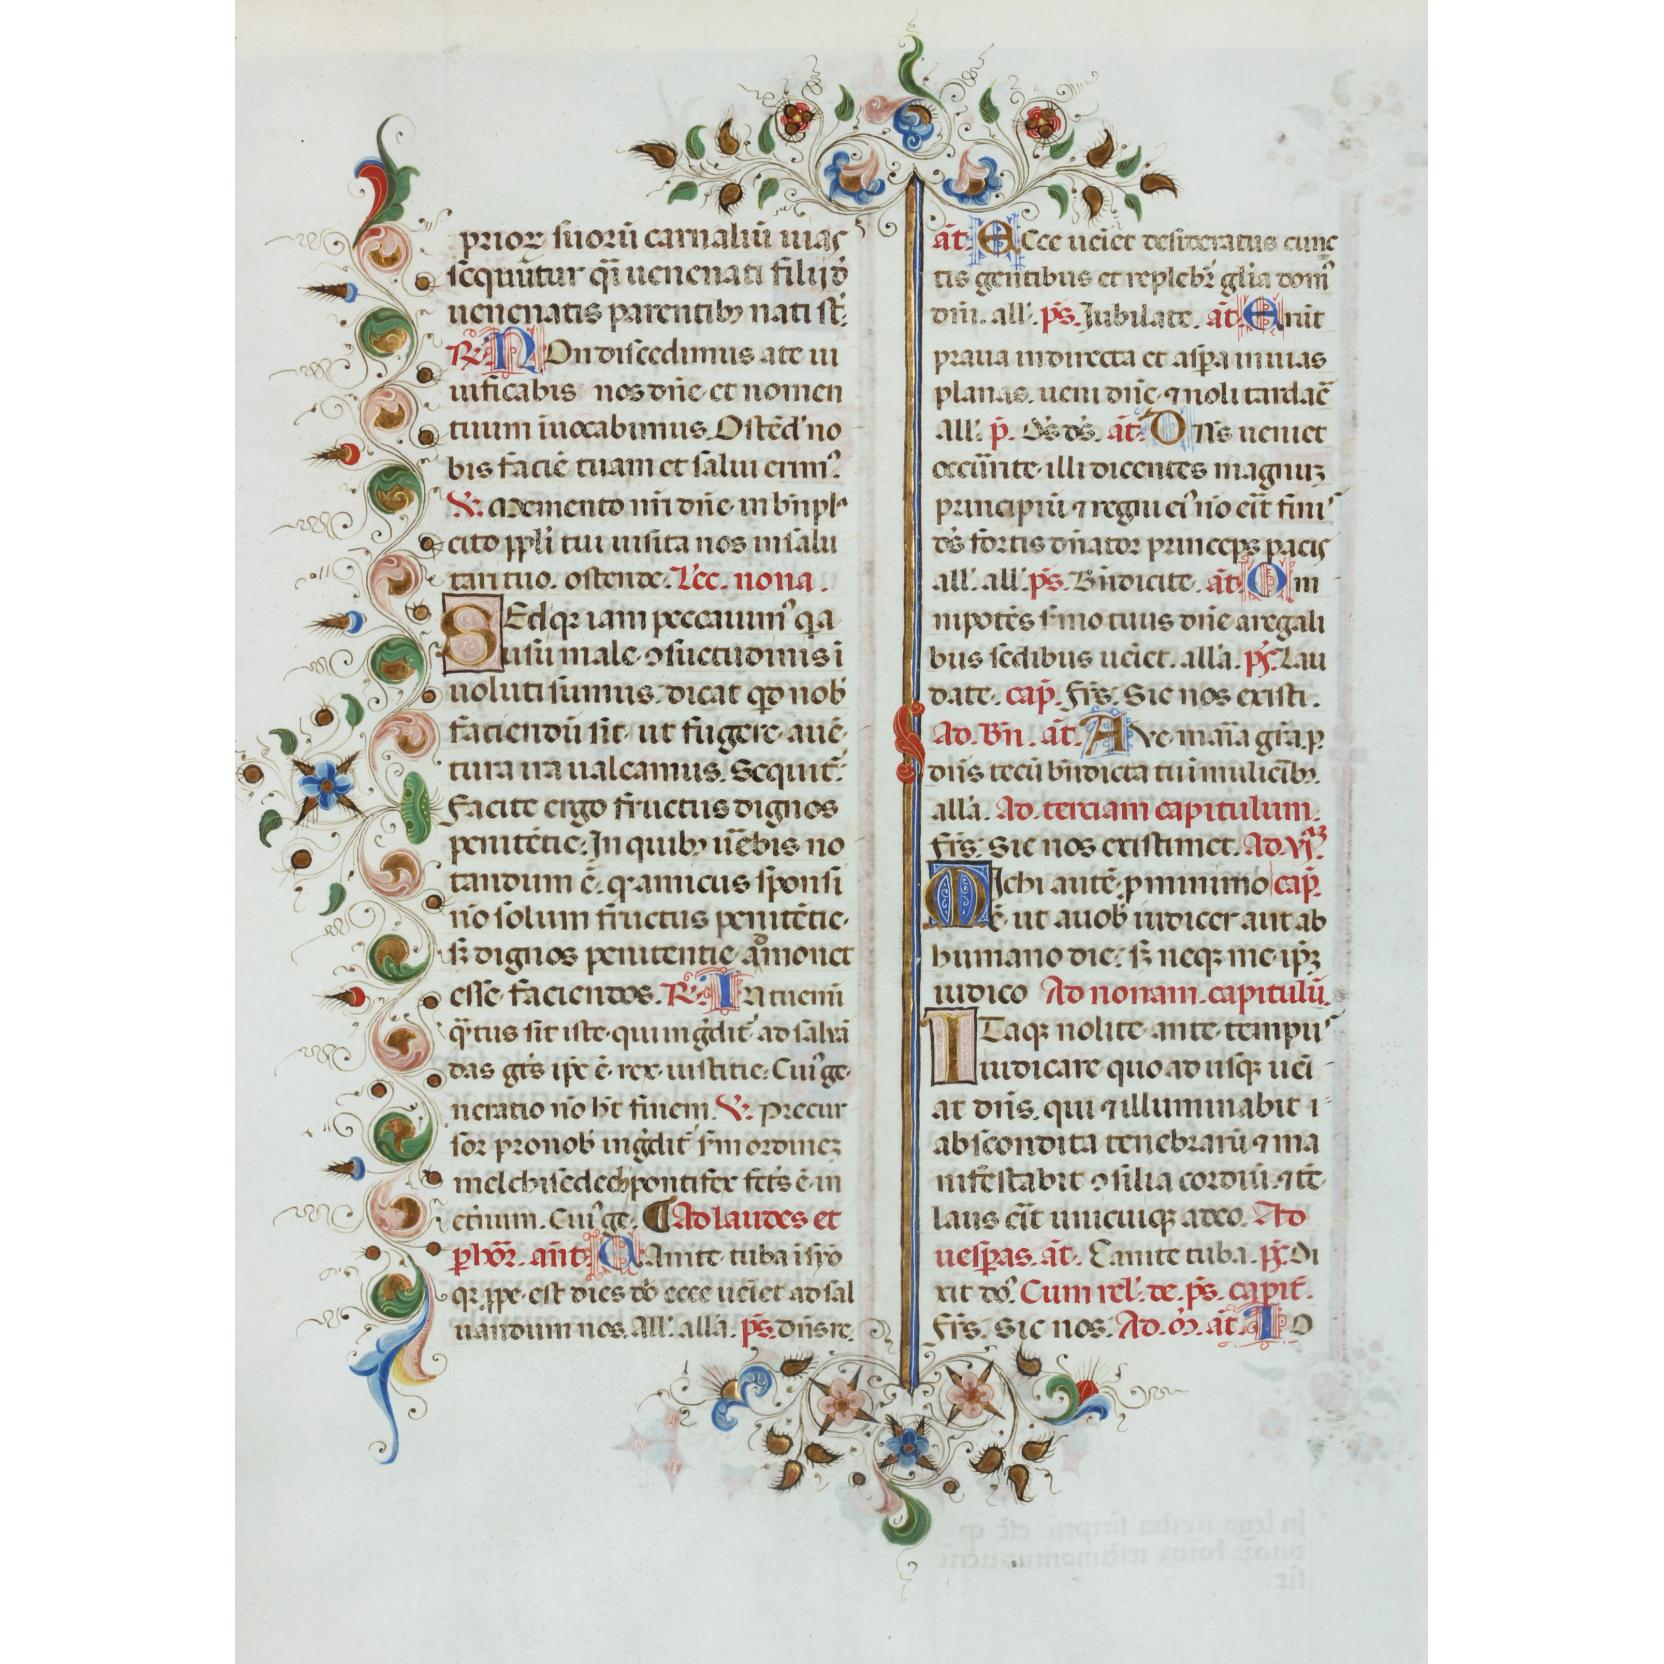 prioꝝ suoꝝ carnaliū uias
sequūtur qi uenenati filij ð
uenenatis parentibꝫ nati st̄.
℟. Non discedimus a te ui
uificabis nos dn̄e et nomen
tuum īuocabimus. Ostēd' no
bis faciē tuam et salui erimꝰ.
℣. Memento nr̄i dn̄e in bn̄pla
cito ppl'i tui uisita nos in salu
tari tuo. ostende. Lec. nona.
Sed qꝛ iam peccauimꝰ qꝛ a
usu male ꝯsuetudinis ī
uoluti sumus. dicat qd nob̄
faciendū sit. ut fugere auē
tura ira ualeamus. Sequit̄.
Facite ergo fructus dignos
penitētie. In quibꝫ u̅bis no
tandum ē. qꝛ amicus sponsi
nō solum fructus penitētie.
sꝫ dignos penitentie amonet
esse faciendos. ℟. Intuemi
q̄tus sit iste. qui ingdit̄ ad saluā
das gt̄s ipe ē. rex iustitie. Cuiꝰ ge
neratio nō ht̄ finem. ℣. Precur
sor pro nob̄ ingdit̄ scdm ordinez
melchisedech pontifex fcts ē. in
etnum. Cuiꝰ ge. ¶ Ad laudes et
p hor̄. ant̄. Canite tuba i syo
qꝛ ppe. est dies do' ecce ueiet ad sal
uandum nos. All'. alla. ps. dn̄s re.
at̄. Ecce ueiet desideratus cunc
tis gentibus et replebr̄ gl̄ia domꝰ
dn̄i. all'. ps. Jubilate. at̄. Erūt
praua in directa et asp̄a in uias
planas. ueni dn̄e ⁊ noli tardaē
all'. p̄. Ds̄ ds̄. at̄. Dn̄s ueniet
occūrite. illi dicentes magnuz
principiū ⁊ regni eiꝰ nō eīt finiꝰ
ds̄ fortis dn̄ator princeps pacis
all'. all'. ps. Bn̄dicite. at̄. Om
nipotēs smo tuus dn̄e a regali
bus sedibus ueiet. alla. ps. Lau
date. cap̄. Frs̄. Sic nos existi.
Ad. Bn̄. at̄. Aue maria gr̄a p.
dn̄s tecū bn̄dicta tu i mulieribꝫ.
alla. Ad terciam capitulum.
Frs̄. Sic nos existimet. Ad. vjᵃᵐ.
Michi autē. p minimo cap̄.
ē. ut a uob̄ iudicer aut ab
humano die. sꝫ neqꝫ me ipꝫ
iudico Ad nonam. capitulū.
Itaqꝫ nolite ante tempus
iudicare. quo ad usqꝫ uēi
at dn̄s. qui ⁊ illuminabit i
abscondita tenebrarū ⁊ ma
nifestabit ꝯsilia cordiū. ⁊ tē
laus eīt unicuiqꝫ a deo. Ad
uesp̄as. at̄. Canite tuba. ps. Di
xit do'. Cum rel'. de. ps. capit̄.
Frs̄. Sic nos. Ad. m̄. at̄. Io